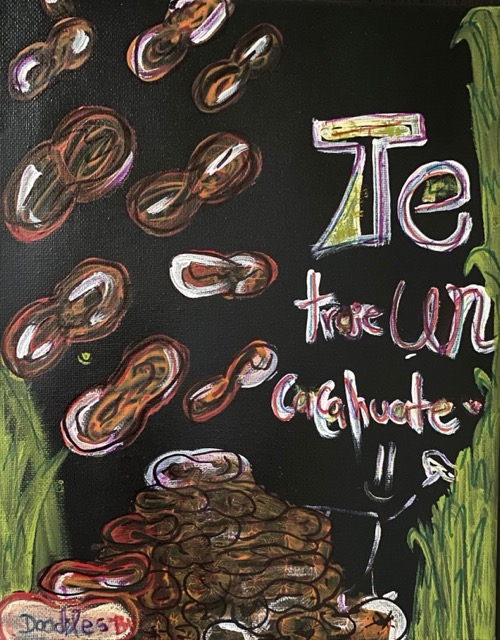 Te
traje un
cacahuate
Doodles